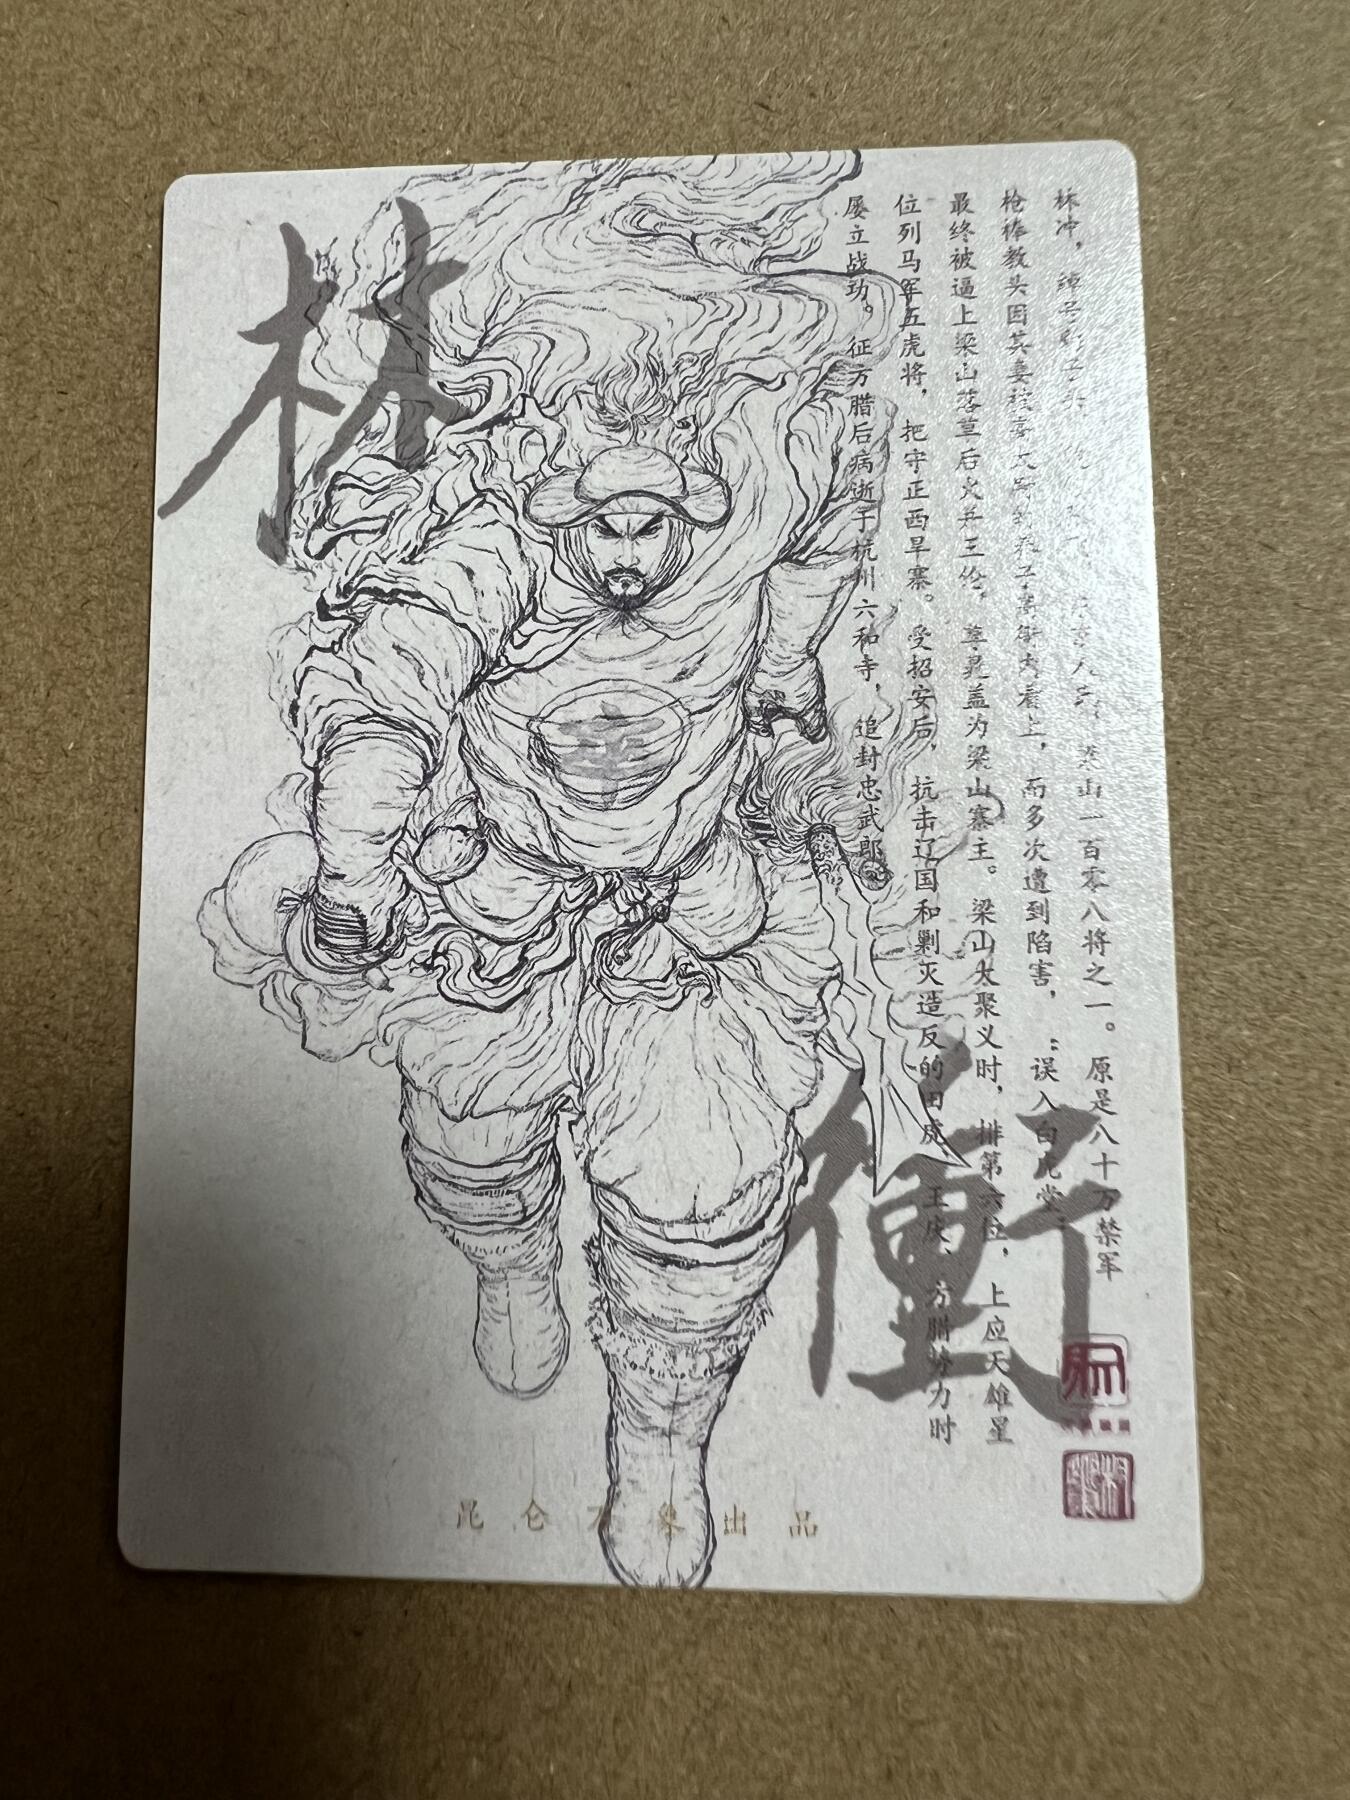 林
衝
林冲，绰号豹子头，
人氏，梁山一百零八将之一。原是八十万禁军
枪棒教头因其妻被高太尉的养子高衙内看上，而多次遭到陷害，：误入白虎堂；
最终被逼上梁山落草后火并王伦，尊晁盖为梁山寨主。梁山大聚义时，排第六位，上应天雄星
位列马军五虎将，把守正西旱寨。受招安后，抗击辽国和剿灭造反的田虎、王庆、方腊势力时
屡立战功。征方腊后病逝于杭州六和寺，追封忠武郎
昆仑万象出品